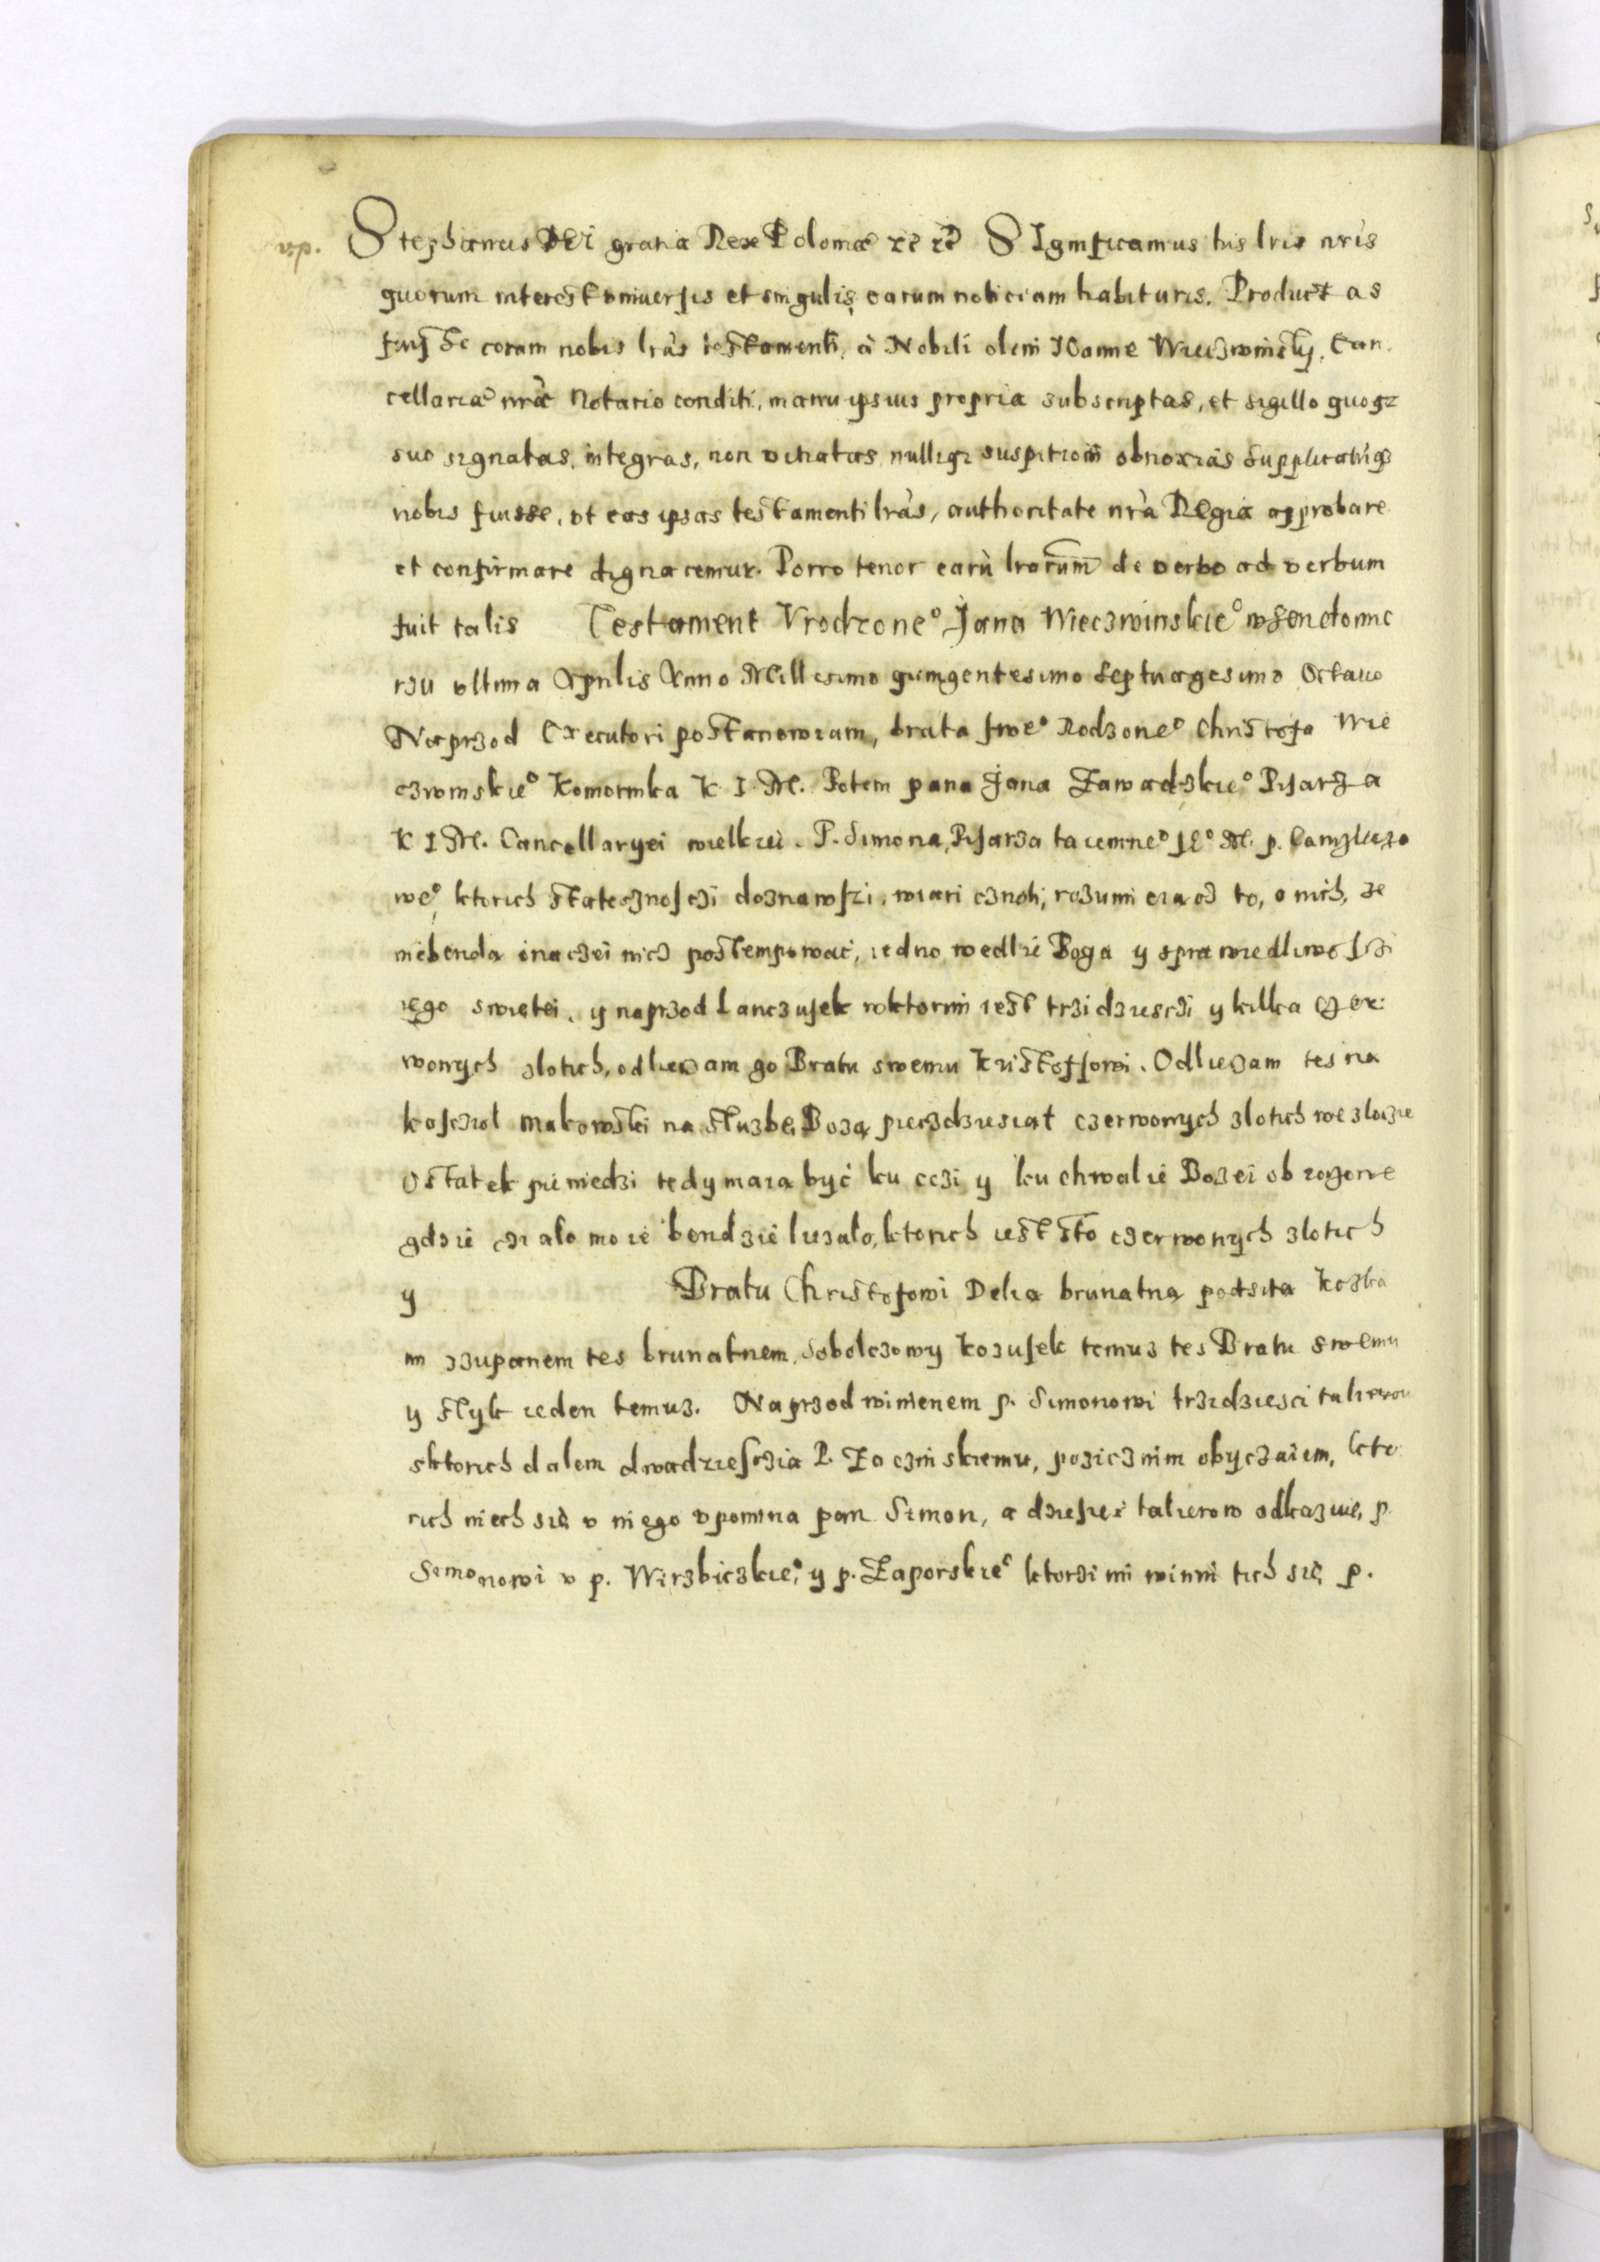 vp. Stephanus DEi gratia Rex Poloniæ rē rē SIgnificamus his lris nris
quorum interest vniuersis et singulis earum noticiam habituris. Product as
fuisse coram nobis lràs testamenti, à Nobili olim IOanne Wieczwinsky, Can
cellariæ nræ Notario conditi, manu ipsius propria subscriptas, et sigillo quoqz
suo signatas, integras, non vitiatas nulliqz suspitioni obnoxias Supplicatūqz
nobis fuisse, vt eas ipsas testamenti lràs, authoritate nrà REgia approbare
et confirmare dignaremur. Porro tenor earù lrarum de verbo ad verbum
fuit talis Testament Vrodzone° Jana Wieczwinskie° wSendomie
rzu vltima Aprilis Anno Millesimo quingentesimo Septuagesimo Octauo
Naprzod Executori postanowiam, brata swe° Rodzone° Christofa Wie
czwinskie° Komornika K I M. Potem pana Jana Zawadzkie° Pisarza
K I M. Cancellaryei wielkiei. P. Simona, Pisarza taiemne° JE° M. p. Canzlierzo
we° ktorich statecznosczi doznawszi, wiari cznoti, rozumieiacz to, o nich, ze
niebenda inaczei nicz postempowac, iedno wedlie Boga y sprawiedliwosczi
iego swietei, y naprzod Lanczusek wktorim iest trzidziesczi y kilka czer:
wonych zlotich, odliezam go Bratu swemu Kristoffowi. Odliezam tes na
kosciol makowski na sluzbe Bozą piecdziesiat czerwonych zlotich we zlozie
Ostatek pieniedzi tedy maia być ku czi y ku chwalie Bozei obrozone
gdzie czialo moie bendzie liezalo, ktorich iest sto czerwonych zlotich
y Bratu Christofowi Delia brunatna podsita Kozka
mi zzupanem tes brunatnem, Sobolczowy kozusek temuz tes Bratu swemu
y slyk ieden temuz. Naprzod winienem p. Simonowi trzidziesci talierow
sktorich dalem dwadziesczia P. Zoczinskiemu, pozicznim obyczaiem, kto
rich niech sie v niego vpomina pan Simon, a dziesiec talierow odkazuie, p.
Simonowi v p. Wirzbiczkie°, y p. Zaporskie° ktorzi mi winni tich sie p.